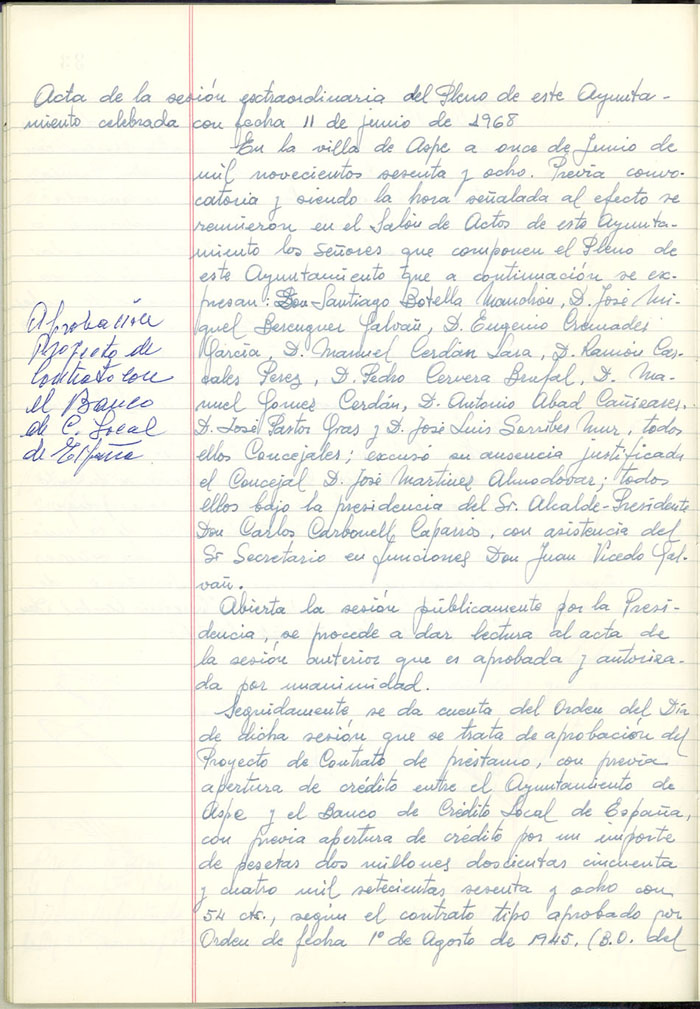 Acta de la sesión extraordinaria del Pleno de este Ayunta-
miento celebrada con fecha 11 de junio de 1968
En la villa de Aspe a once de Junio de
mil novecientos sesenta y ocho. Previa convo-
catoria y siendo la hora señalada al efecto se
reunieron en el Salón de Actos de este Ayunta-
miento los Señores que componen el Pleno de
este Ayuntamiento que a continuación se ex-
presan: Don Santiago Botella Manchón, D. José Mi-
guel Berenguer Galvañ, D. Eugenio Cremades
García, D. Manuel Cerdán Lara, D. Ramón Cas-
cales Perez, D. Pedro Cervera Brufal, D. Ma-
nuel Gomez Cerdán, D. Antonio Abad Cañizares,
D. José Pastor Gras y D. José Luis Sorribes Mur, todos
ellos Concejales; excusó su ausencia justificada
el Concejal D. José Martinez Almodovar; todos
ellos bajo la presidencia del Sr. Alcalde-Presidente
Don Carlos Carbonell Caparros, con asistencia del
Sr Secretario en funciones Don Juan Vicedo Gal-
vañ.
Abierta la sesión públicamente por la Presi-
dencia, se procede a dar lectura al acta de
la sesión anterior que es aprobada y autoriza-
da por unanimidad.
Seguidamente se da cuenta del Orden del Día
de dicha sesión que se trata de aprobación del
Proyecto de Contrato de préstamo, con previa
apertura de crédito entre el Ayuntamiento de
Aspe y el Banco de Crédito Local de España,
con previa apertura de crédito por un importe
de pesetas dos millones doscientas cincuenta
y cuatro mil setecientas sesenta y ocho con
54 cts., según el contrato tipo aprobado por
Orden de fecha 1º de Agosto de 1945. (B.O. del
Aprobación
Proyecto de
Contrato con
el Banco
de C. Local
de España